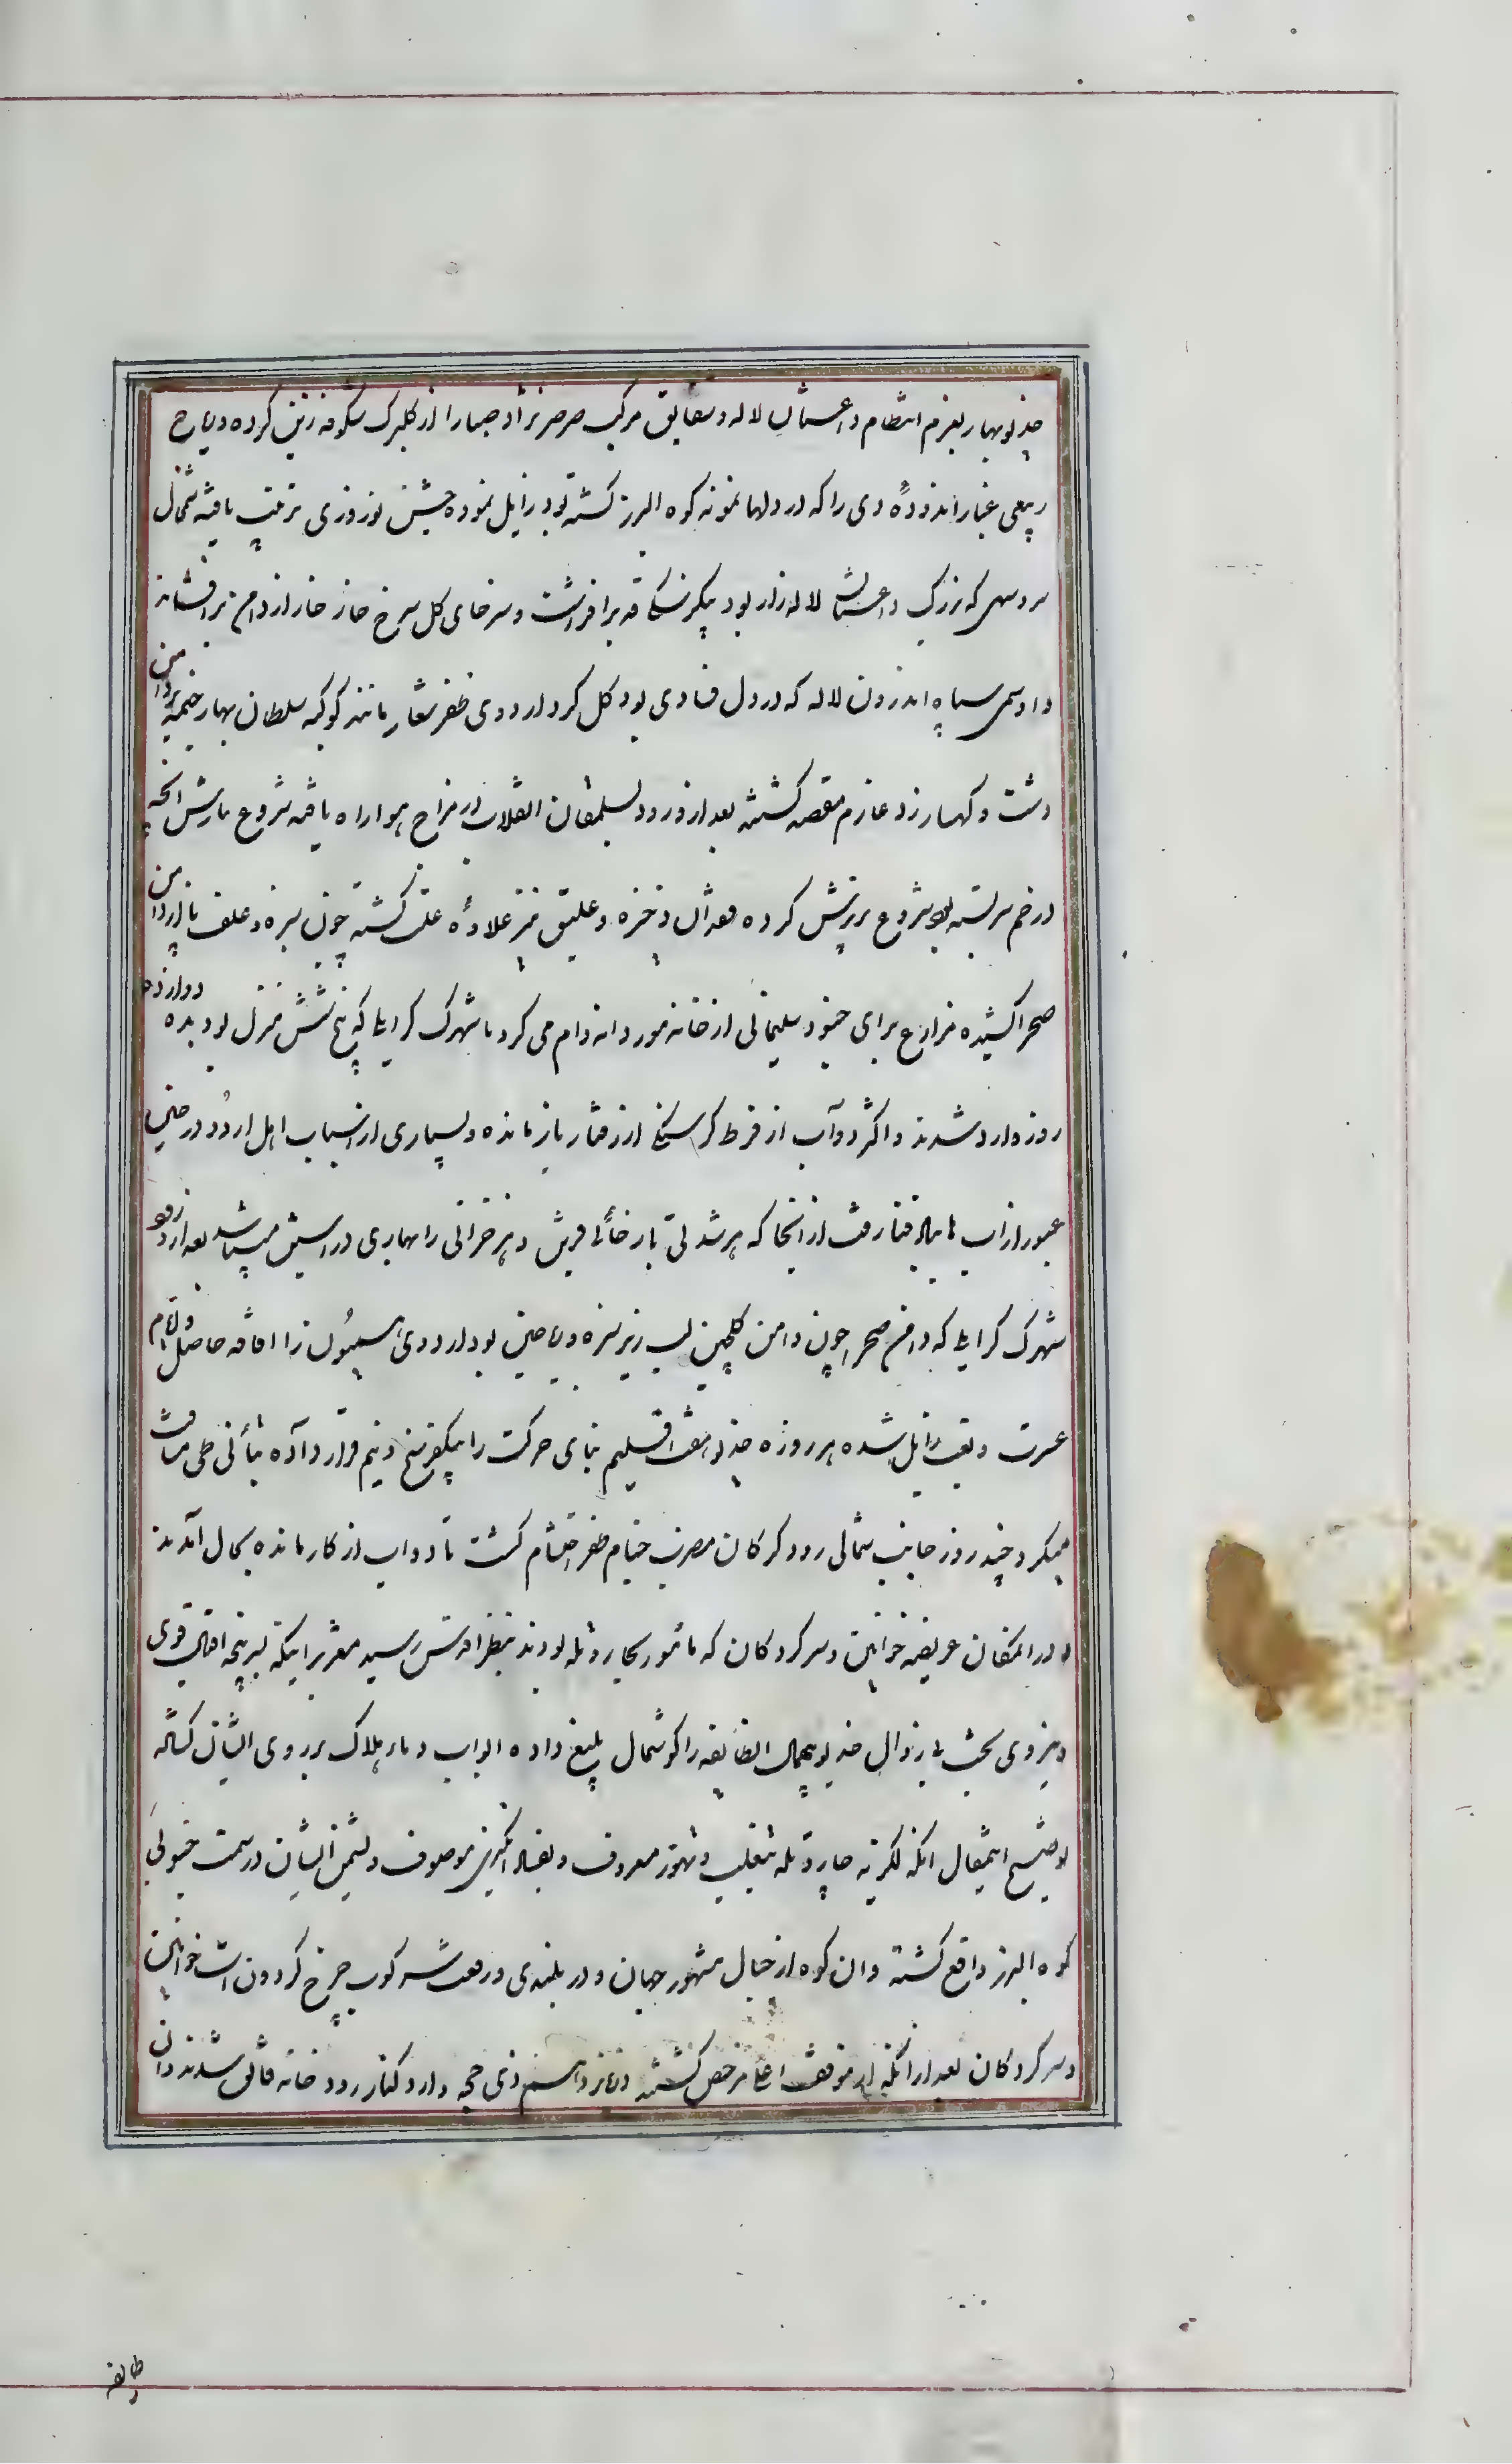 خدیو بهار بعزم انتظام داغستان لاله و شقایق مرکب صرصر نژاد صبا را از گلبرگ شکوفه زین کرده و ریاح
ربیعی غبار اندوه دی را که در دلها نمونه کوه البرز گشته بود زایل نموده جشن نوروزی ترتیب یافته شمخال
سرو سهی که بزرگ داغستان لاله زار بود یکرنگی قد برافراشت و سرخای گل سرخ خار خار از دامن برافشاند
و اوسمی سیاه اندرون لاله که در دل فسادی بود گل کرد اردوی ظفر شعار مانند کوکبه سلطان بهار خیمه بر دامن
دشت و کهسار زد عازم مقصد گشتند بعد از ورود بسلمقان انقلاب در مزاج هوا راه یافته شروع بارش آنچه
در خم سربسته بود شروع بریزش کرده فقدان ذخیره و علیق نیز علاوه علت گشته چون سبزه و علف پا از دامن
صحرا کشیده مزارع برای جنود سلیمانی از خانه مور دانه وام می کرد تا شهرک گرایلی که پنج شش منزل بود بده دوازده
روز وارد شدند و اکثر دواب از فرط گرسنگی از رفتار باز مانده و بسیاری از اسباب اهل اردو در حین
عبور از آب بباد فنا رفت از آنجا که هر شدتی را رخائی قرین و هر خزانی را بهاری در پیش میباشد بعد از ورود
شهرک گرایلی که دامن صحرا چون دامن گلچین لبریز سبزه و ریاحین بود اردوی همیون را افاقه حاصل و ایام
عسرت و تعب زایل شده هر روزه خدیو هفت اقلیم بنای حرکت را بیکفرسخ و نیم قرار داده بتأنی طی مسافت
میکرد چند روز جانب شمالی رود گرگان مضرب خیام ظفر احتشام گشت تا دواب از کار مانده بحال آمدند
و در انمکان عریضه خوانین و سرکردگان که مأمور بجار و تله بودند بنظر اقدس رسید مشعر بر اینکه بسر پنجه اقبال قوی
و نیروی بخت بی زوال خدیو بیهمال انطایفه را گوشمال بلیغ داده ابواب دمار و هلاک بر روی ایشان گشاده
توضیح اینمقال آنکه لگزیه جار و تله بتغلب و تهور معروف و بفساد انگیزی موصوف و نشیمن ایشان در سمت جنوبی
کوه البرز واقع گشته و ان کوه از جبال مشهور جهان و در بلندی و رفعت سرکوب چرخ گردون است خوانین
و سرکردگان بعد از آنکه از موقف اعلی مرخص گشتند در دهم ذی حجه وارد کنار رودخانه قانق شدند و ان
طایفه